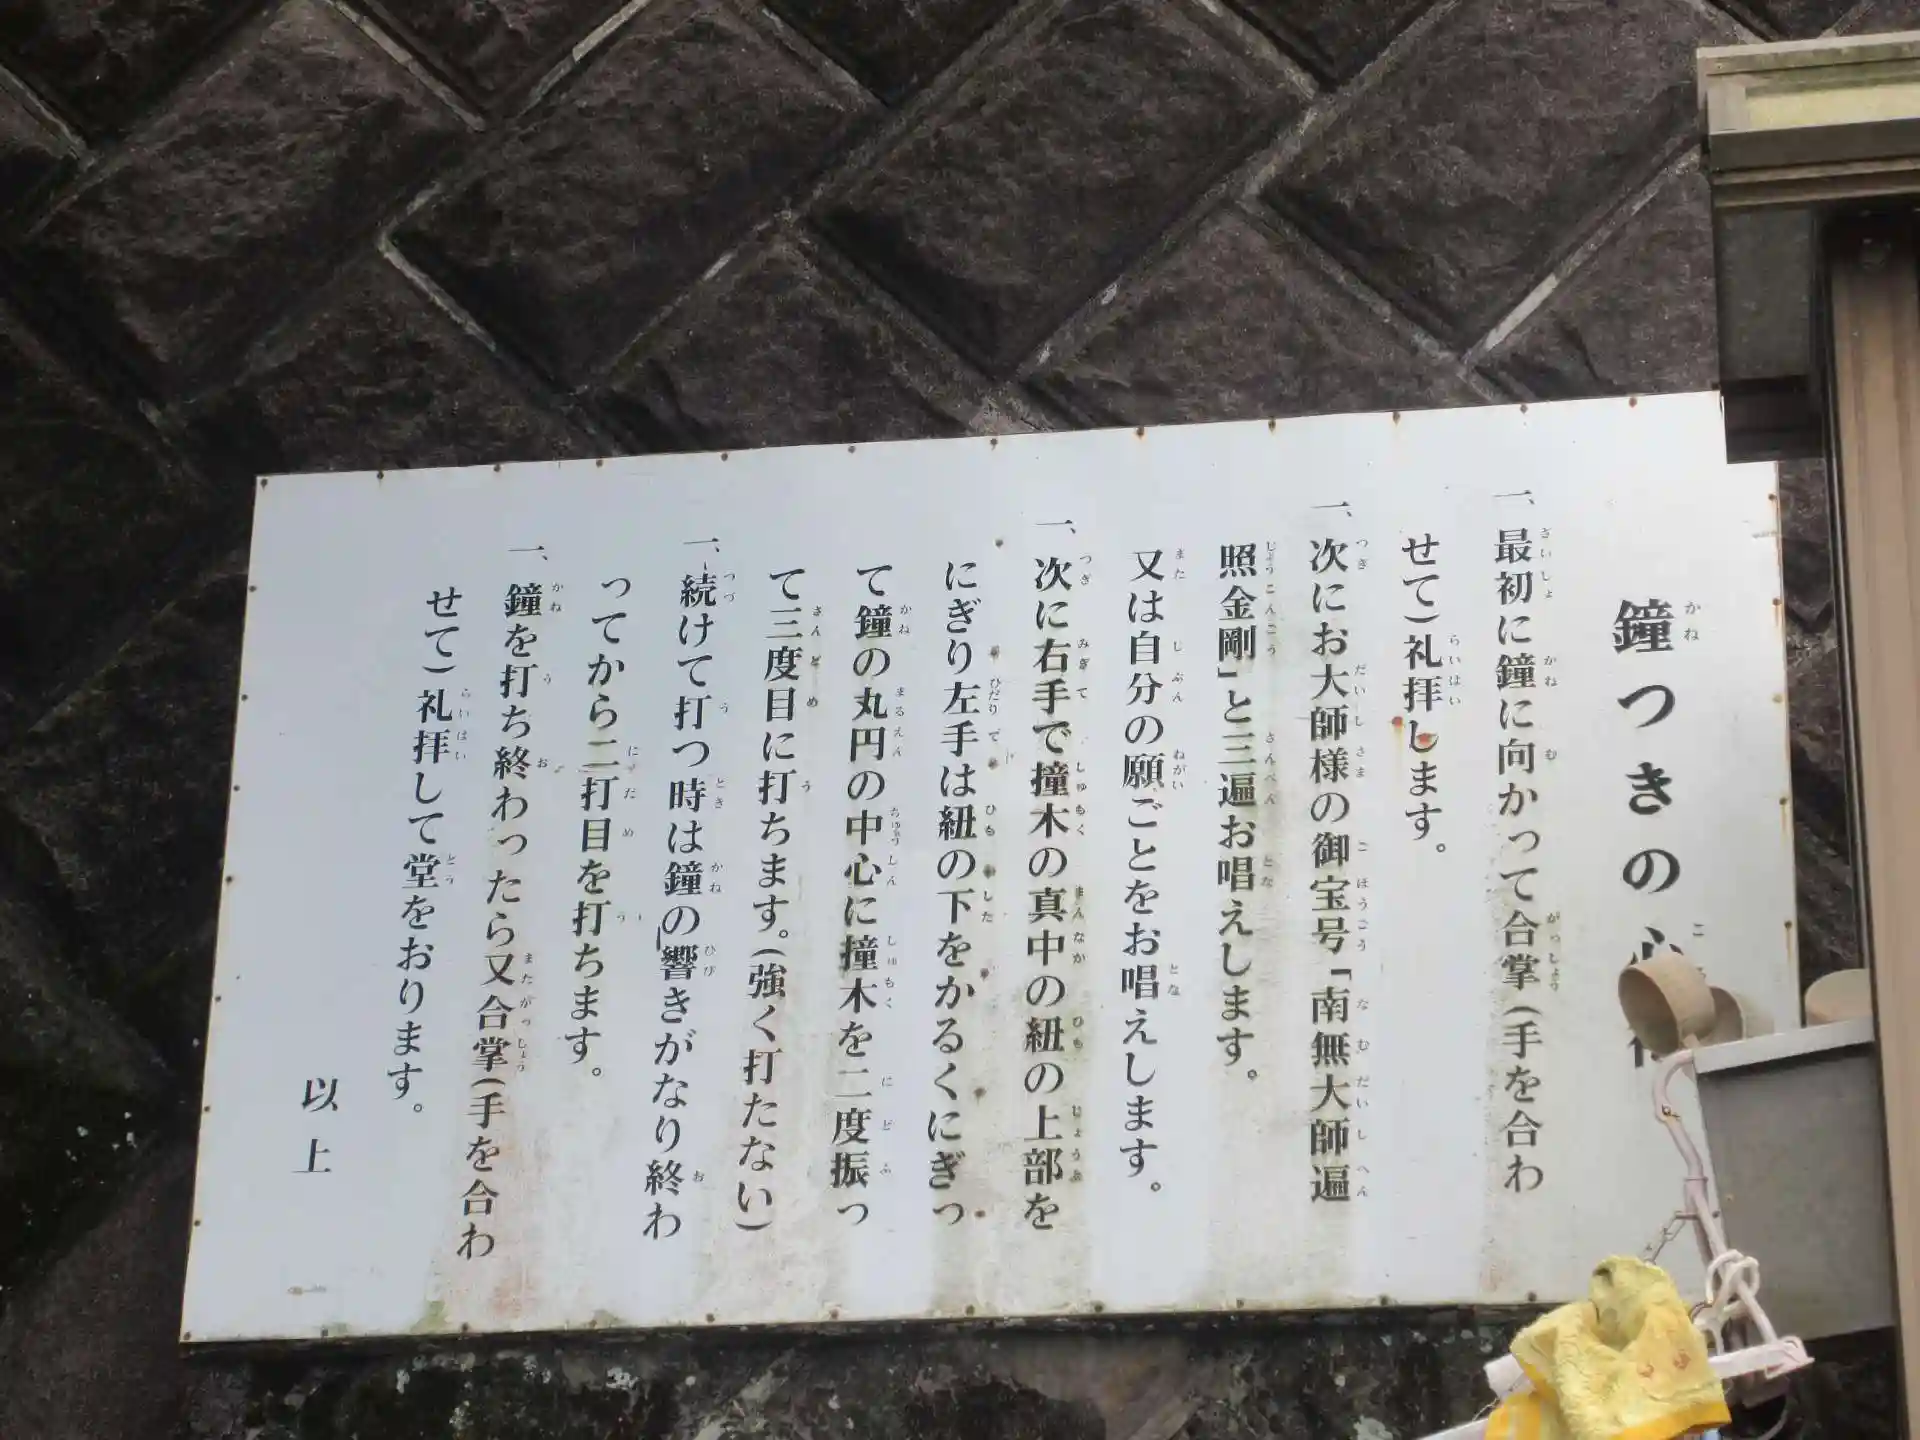 鐘つきの心
一、最初に鐘に向かって合掌（手を合わ
せて）礼拝します。
一、次にお大師様の御宝号「南無大師遍
照金剛」と三遍お唱えします。
又は自分の願ごとをお唱えします。
一、次に右手で撞木の真中の紐の上部を
にぎり左手は紐の下をかるくにぎっ
て鐘の丸円の中心に撞木を二度振っ
て三度目に打ちます。（強く打たない）
一、続けて打つ時は鐘の響きがなり終わ
ってから二打目を打ちます。
一、鐘を打ち終わったら又合掌（手を合わ
せて）礼拝して堂をおります。
以上